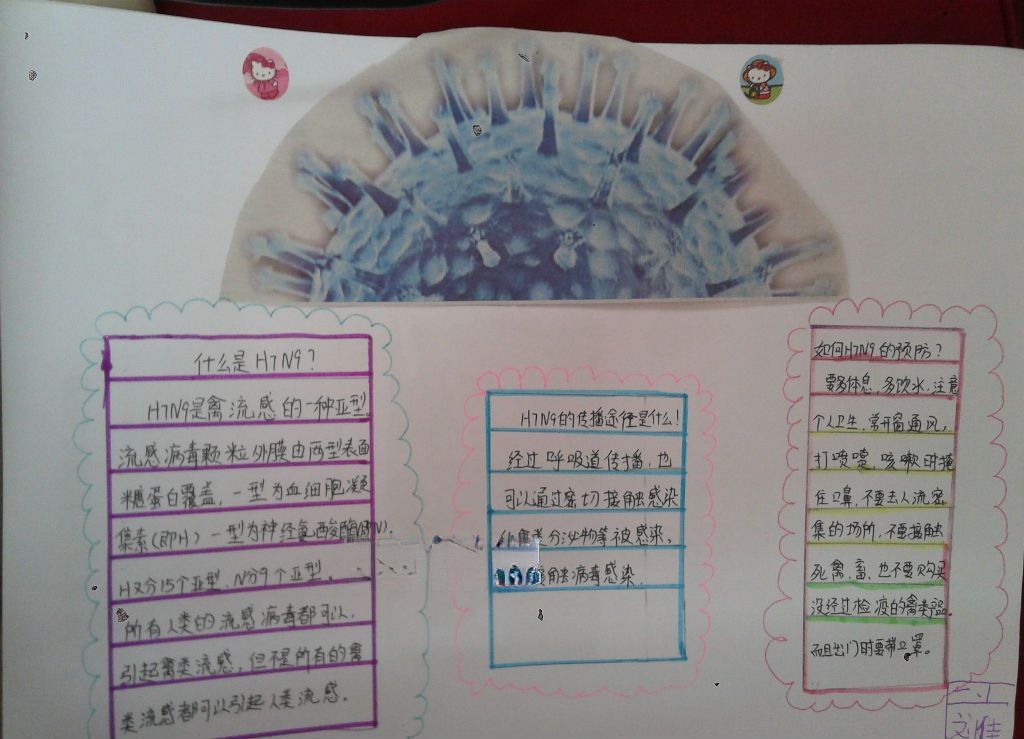 什么是H7N9?
H7N9是禽流感的一种亚型
流感病毒颗粒外膜由两型表面
糖蛋白覆盖,一型为血细胞凝
集素(即H)一型为神经氨酸酶(即N).
H又分15个亚型,N分9个亚型.
所有人类的流感病毒都可以,
引起禽类流感,但不是所有的禽
类流感都可以引起人类流感.
H7N9的传播途径是什么!
经过呼吸道传播,也
可以通过密切接触感染
禽类分泌物等被感染.
接触病毒感染.
如何H7N9的预防?
要多休息,多饮水,注意
个人卫生,常开窗通风,
打喷嚏,咳嗽时掩
住口鼻,不要去人流密
集的场所,不要接触
死禽,畜,也不要购买
没经过检疫的禽类
而且出门时要带口罩。